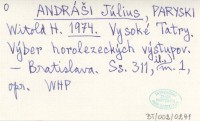 0
ANDRÁŠI Július, PARYSKI
Witold H. 1974. Vysoké Tatry.
Výber horolezeckých výstupov.
– Bratislava. Ss. 311, m. 1,
opr. WHP